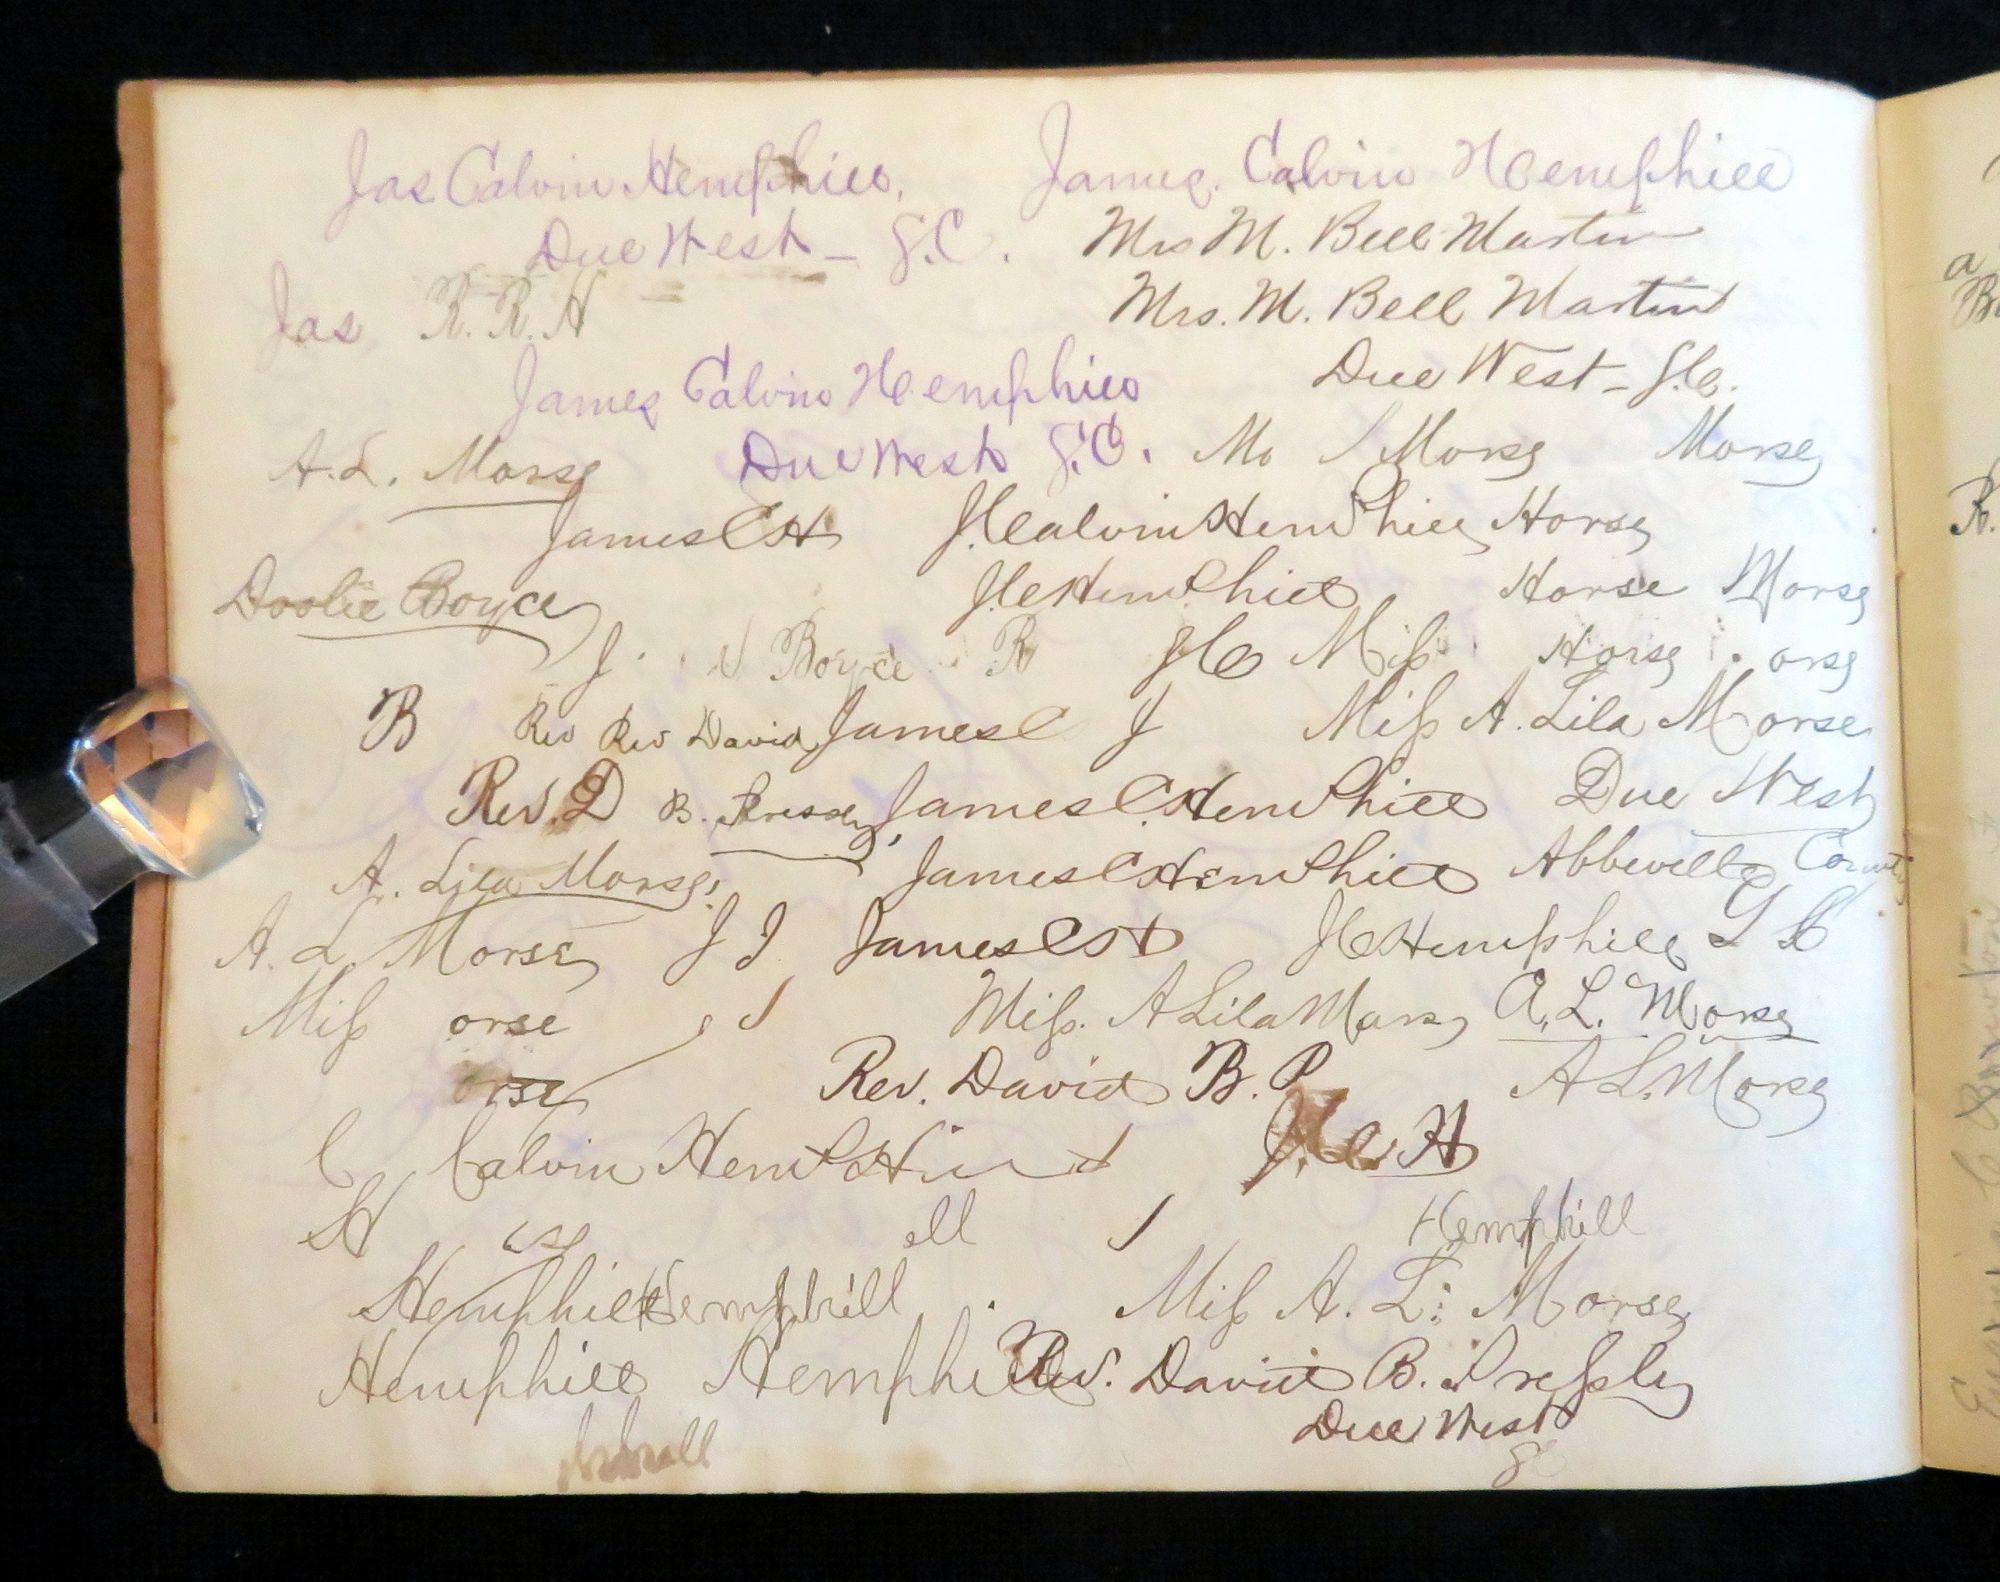 Jas Calvin Hemphill. James. Calvin Hemphill
Due West – S.C. Mrs M. Bell Martin
Jas R. R. H Mrs. M. Bell Martin
James Calvin Hemphill Due West – S.C.
A. L. Morse Due West S.C. Mo Morse Morse
James C H J. Calvin Hemphill Horse
Doolie Boyce J C Hemphill Horse Morse
J. Boyce R J C Miss Horse orse
B Rev Rev David James C J Miss A. Lila Morse
Rev. D B. Pressly James C. Hemphill Due West
A. Lila Morse. James C Hemphill Abbeville County
A. L. Morse J J James C H J C Hemphill S C
Miss orse Miss. A Lila Morse A. L. Morse
orse Rev. David B. P A L. Morse
C Calvin J. C. H
H ill Hemphill
Hemphill Hemphill Miss A. L. Morse
Hemphill Hemphill Rev. David B. Pressly
Due West
S